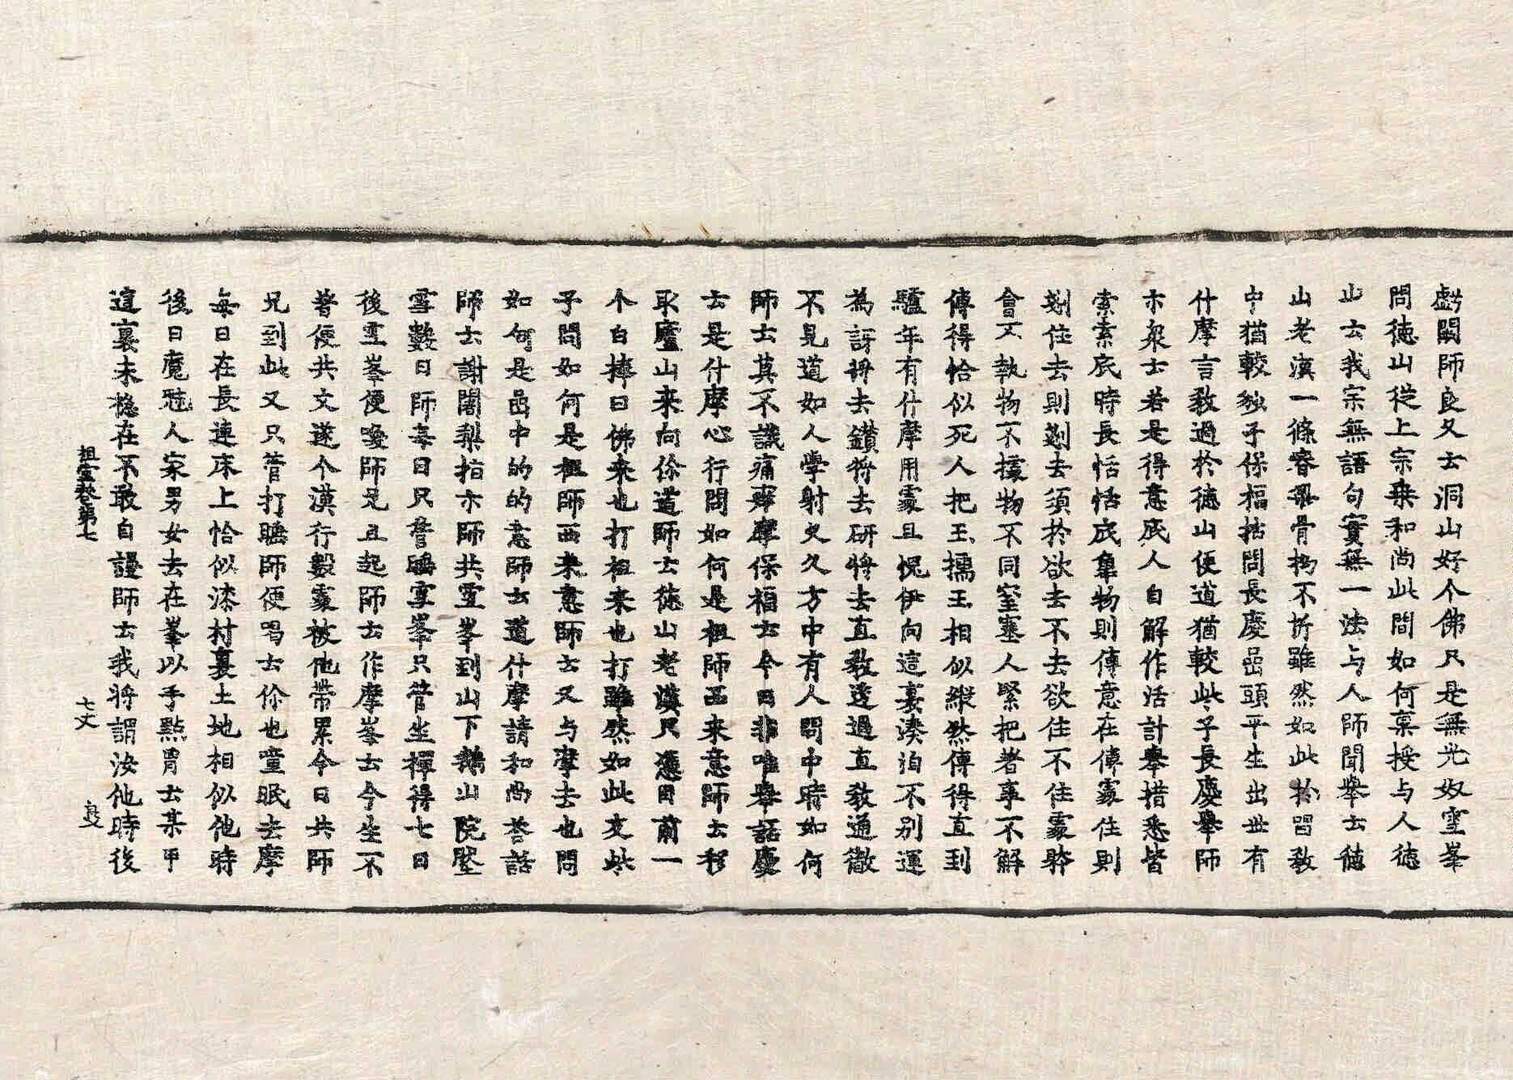 虧闕師良久士洞山好个佛只是無光奴雪峯
問德山從上宗乘和尚此間如何稟授与人德
山士我宗無語句實無一法与人師聞舉士德
山老漢一條脊梁骨拗不折雖然如此於唱教
中猶較些子保福拈問長慶嵒頭平生出世有
什摩言教過於德山便道猶較些子長慶舉師
示衆士若是得意底人自解作活計舉措悉皆
索索底時長恬恬底隼物則傳意在傳處住則
剗住去則剗去須於欲去不去欲住不住處躰
會不執物不據物不同窒塞人緊把著事不解
傳得恰似死人把玉擩玉相似縱然傳得直到
驢年有什摩用處且愰伊向這裏湊泊不別運
為訝將去鑽將去研將去直敎透過直敎通徹
不見道如人學射久久方中有人問中時如何
師士莫不識痛痒摩保福士今日非唯舉話慶
士是什摩心行問如何是祖師西來意師士移
取廬山來向你道師士德山老漢只憑目前一
个白捧曰佛來也打祖來也打雖然如此交些
子問如何是祖師西來意師士又与摩去也問
如何是嵒中的的意師士道什摩請和尚荅話
師士謝闍梨指示師共雪峯到山下鵝山院壓
雪數日師每日只管睡雪峯只管坐禪得七日
後雪峯便喚師兄且起師士作摩峯士今生不
著便共文遂个漢行數處被他帶累今日共師
兄到此又只管打睡師便喝士你也噇眠去摩
每日在長連床上恰似漆村裏土地相似他時
後日魔魅人家男女去在峯以手點胷士某甲
這裏未穩在不敢自謾師士我將謂汝他時後
祖堂卷第七
七丈